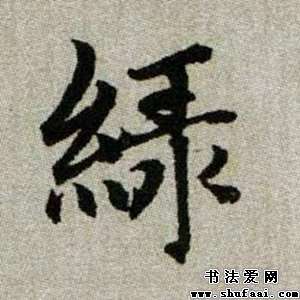 緑
书法爱网
www.shufaai.com